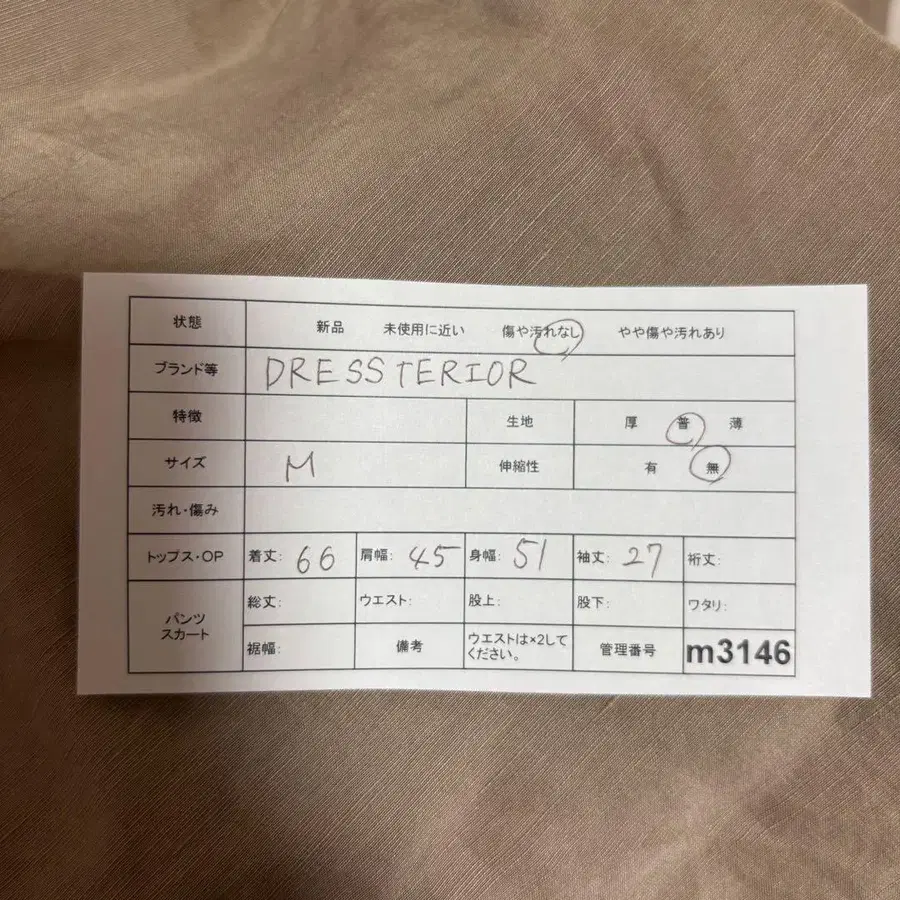 状態 新品 未使用に近い 傷や汚れなし やや傷や汚れあり
ブランド等 DRESSTERIOR
特徴 生地 厚 普 薄
サイズ M 伸縮性 有 無
汚れ・傷み
トップス・OP 着丈: 66 肩幅: 45 身幅: 51 袖丈: 27 裄丈:
パンツ
スカート
総丈: ウエスト: 股上: 股下: ワタリ:
裾幅: 備考 ウエストは×2して
ください。 管理番号 m3146